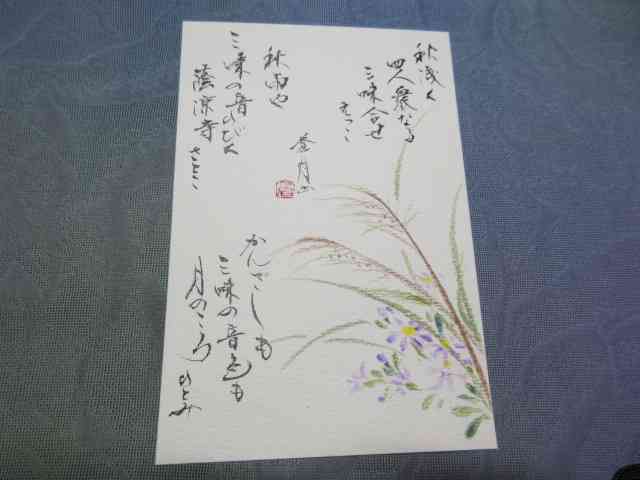 秋浅く
四人衆なる
三味合せ
秋雨や
三味の音ひびく
蔭凉寺
さとこ
かんざしも
三味の音色も
月のころ
ひとみ